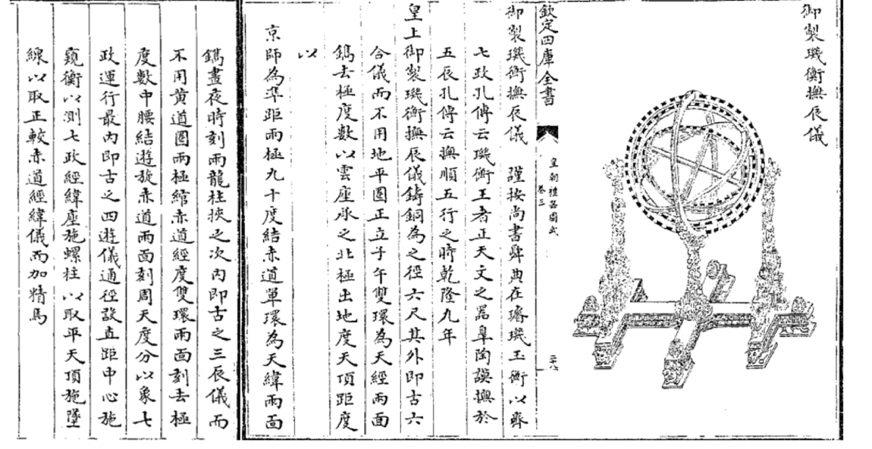 御製璣衡撫辰儀
欽定四庫全書
皇朝禮器圖式
卷三
御製璣衡撫辰儀 謹按尚書舜典在璿璣玉衡以齊
七政孔傳云璣衡王者正天文之器皐陶謨撫於
五辰孔傳云撫順五行之時乾隆九年
皇上御製璣衡撫辰儀鑄銅為之徑六尺其外即古六
合儀而不用地平圈正立子午雙環為天經兩面
鐫去極度數以雲座承之北極出地度天頂距度
以
京師為準距兩極九十度結赤道單環為天緯兩面
鐫晝夜時刻兩龍柱挾之次內即古之三辰儀而
不用黄道圈兩極綰赤道經度雙環兩面刻去極
度數中腰結遊旋赤道兩面刻周天度分以象七
政運行最內即古之四遊儀通徑設直距中心施
窺衡以測七政經緯座施螺柱以取平天頂施墜
線以取正較赤道經緯儀而加精焉